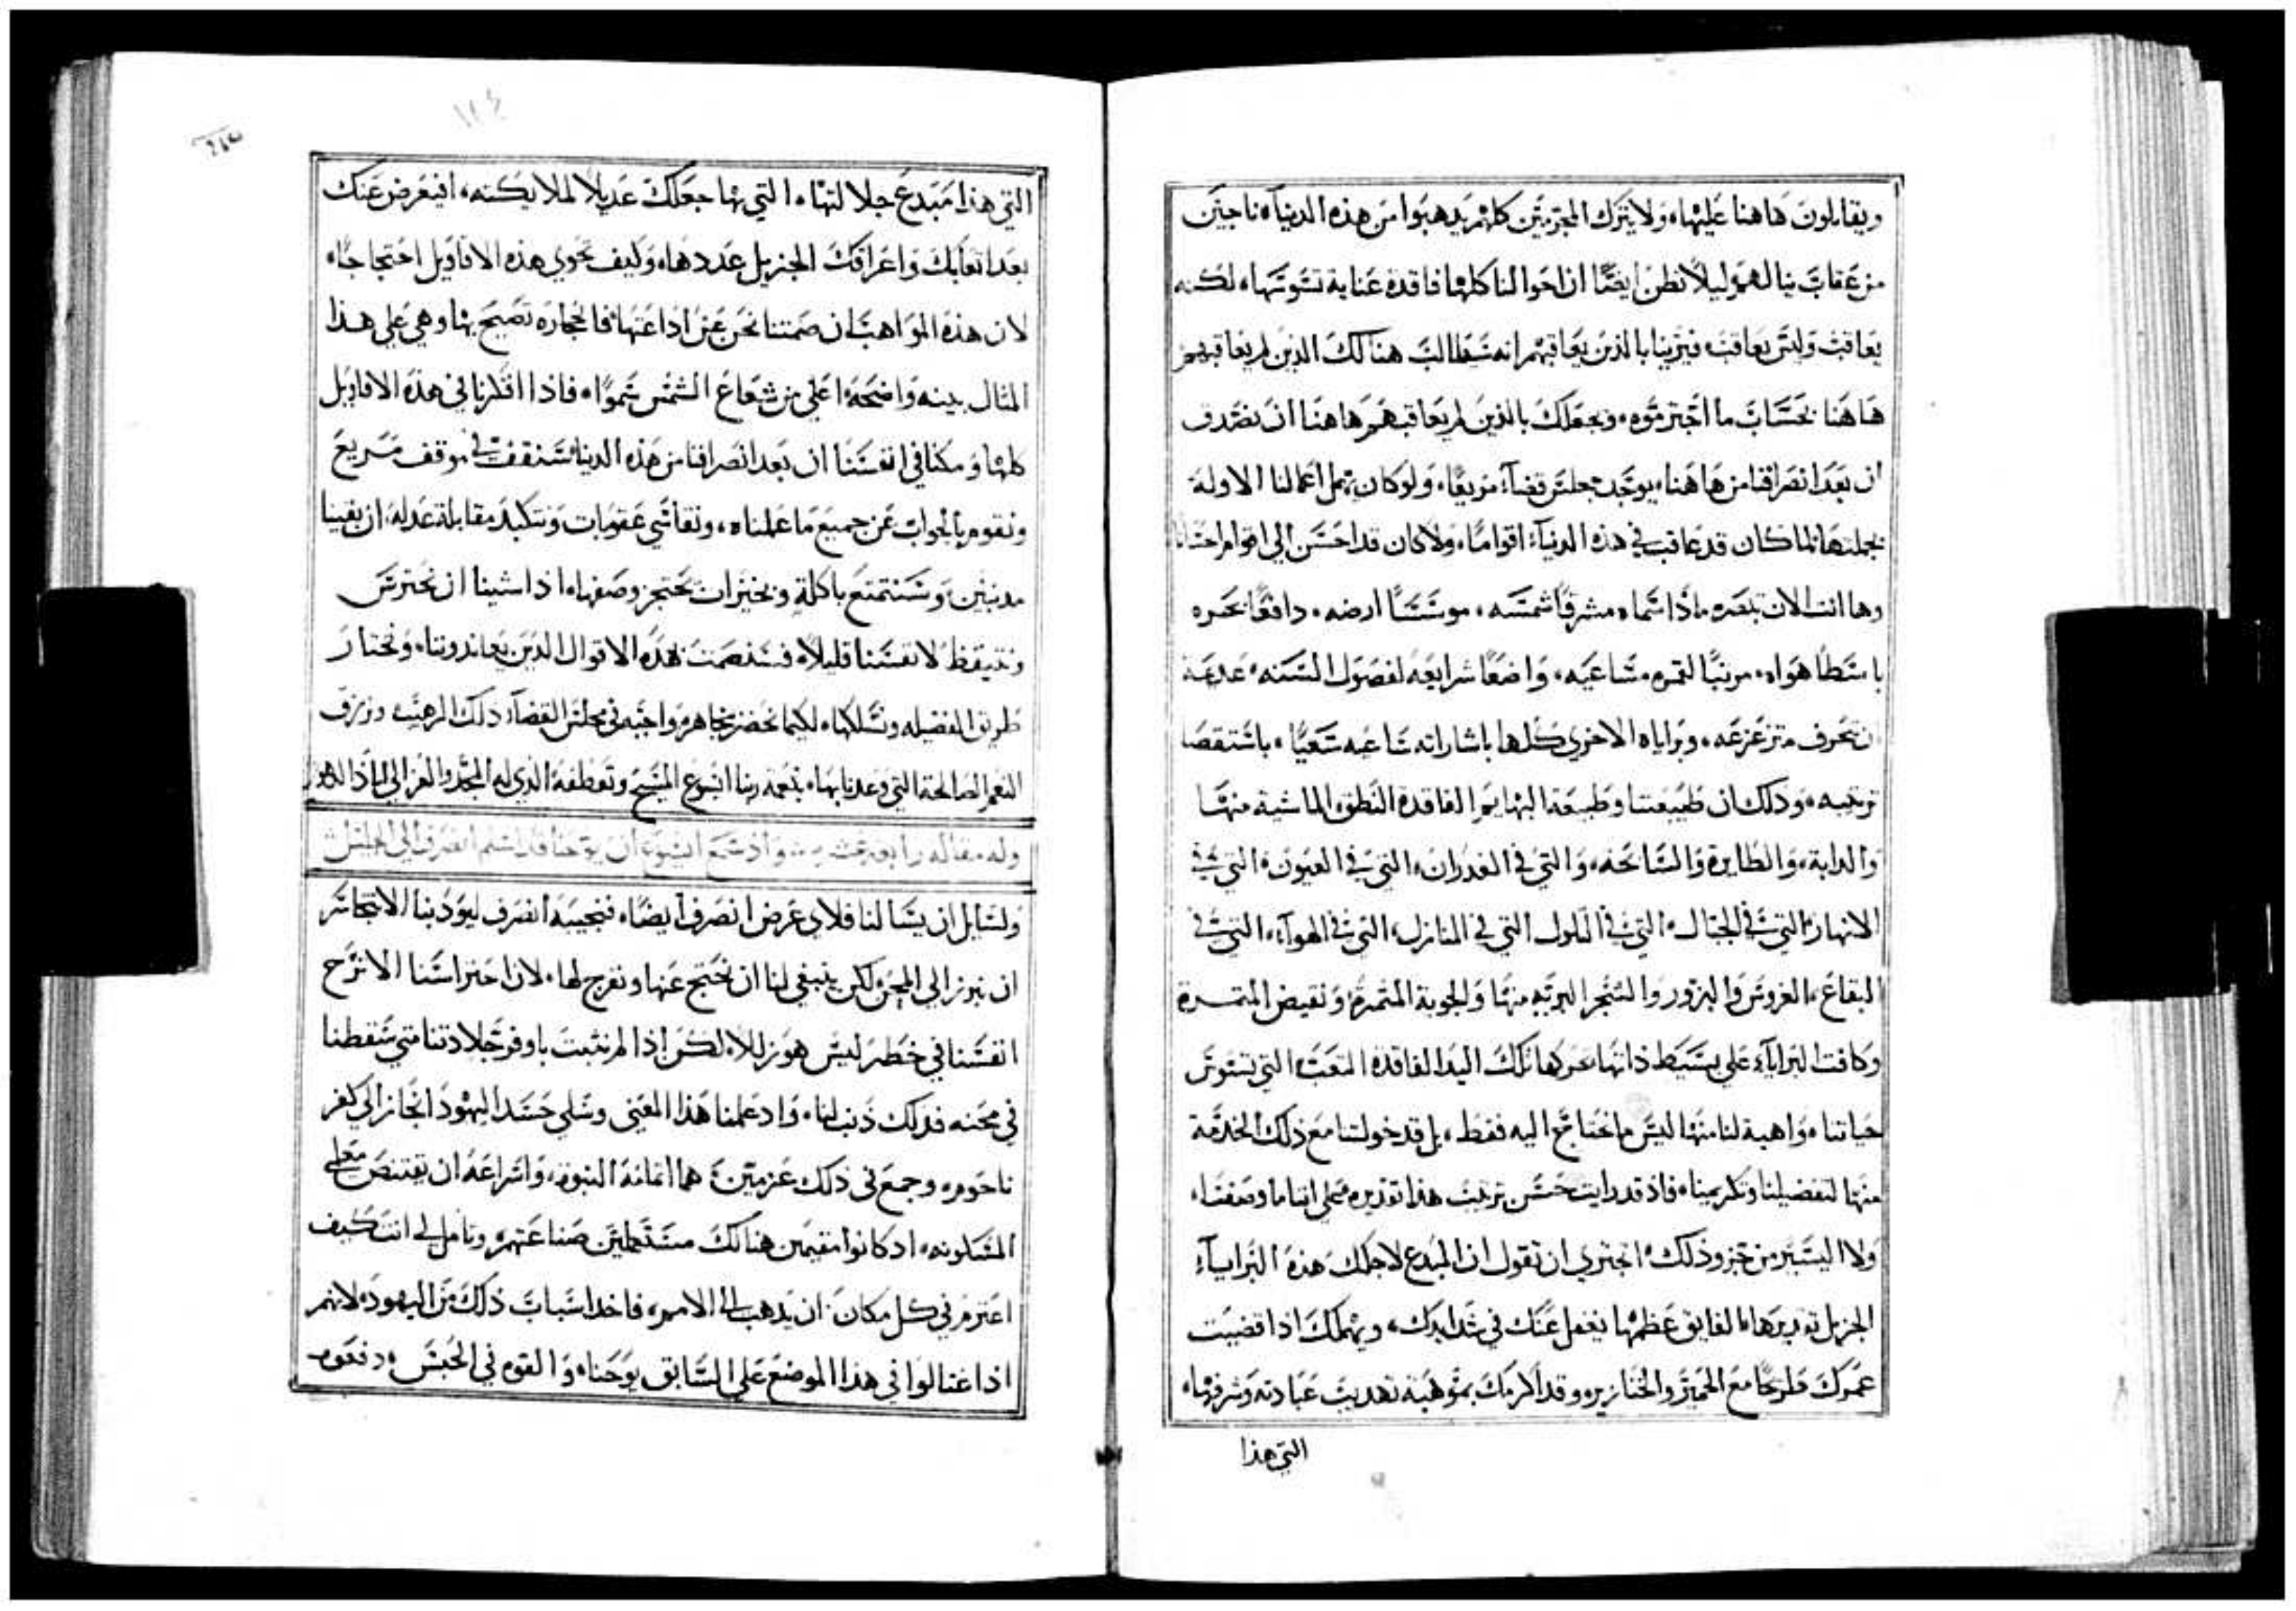 ويقابلون هاهنا عليها، ولا يترك المجرمين كلهم يذهبوا من هذه الدنيا، ناجين
من عقاب ينالهم، وليلا نظن ايضًا ان احوالنا كلها فاقدة عناية تسوسها، لكنه
يعاقب وليس يعاقب، فيرينا بالذين يعاقبهم انه سيطالب هنالك الذين لم يعاقبهم
هاهنا بحساب ما اجترموه، ويجعلك بالذين لم يعاقبهم هاهنا ان تصدق
ان بعد انصرافنا من هاهنا، يوجد مجلس قضآء مريعًا، ولو كان يهمل اعمالنا الاولة
بجملتها لما كان قد عاقب في هذه الدنيآ، اقوامًا، ولا كان قد احسن الي اقوام احسانا
وها انت الان تبصره مادًا سماه، مشرقًا شمسه، موسسًا ارضه، دافعًا بحره
باسطًا هواه، مرتبًا لقمره مساعيه، واضعًا شرايعه لفصول السنه، عديمة
ان تحرف متزعزعه، وبراياه الاخري كلها باشاراته ساعيه سعيًا، باستقصا
ترتيبه، وذلك ان طبيعتنا وطبيعة البهايم الفاقدة النطق، الماشية منها
والدابة، والطايرة والسابحه، والتي في الغدران، التي في العيون، التي في
الانهار، التي في الجبال، التي في التلول التي في المنازل، التي في الهوآء، التي في
البقاع، الغروس والبزور والشجر البرّيه منها والجوية المثمرة، ونقيض المثمرة
وكافت البرايآء علي بسيط ذاتها، تحركها تلك اليد الفاقدة التعب، التي تسوس
حياتنا، واهبة لنا منها ليس ما نحتاج اليه فقط، بل قد خولتنا مع ذلك الخدمة
منها لتفضيلنا وتكريمنا، فاذ قد رايت حسن ترتيب هذا تقديره، علي اننا ما وصفنا،
ولا اليسير من جزو ذلك، اتجتري ان تقول ان المبدع لاجلك هذه البرايآء
الجزيل تقديرها، الفايق عظمها يغفل عنك في شدايدك، ويهملك اذا قضيت
عمرك مطرحًا مع الحمير والخنازير، وقد اكرمك بموهبة تهذيب عبادته وشرفها،
التي هذا
١٢٤
التي هذا مبدع جلالتها، التي بها جعلك عديلًا لملايكته، افيعرض عنك
بعد اتعابك واعراقك الجزيل عددها، وكيف تحوي هذه الاقاويل احتجاجًا،
لان هذه المواهب ان صمتنا نحن عن اذاعتها، فالحجاره تصيح بها وهي علي هذا
المثال بينه واضحه، اعلي من شعاع الشمس سموًا، فاذا افتكرنا في هذه الاقاويل
كلها ومكنا في انفسنا ان بعد انصرافنا من هذه الدنيا، سنقف في موقف مريع
ونقوم بالجواب عن جميع ما عملناه، ونقاسي عقوبات ونتكبد مقابلة عدله، ان بقينا
مذنبين، وسنتمتع باكلة وبخيرات تحتجز وصفها، اذا شينا ان نحترس
ونتيقظ لانفسنا قليلًا، فسنصمت بهذه الاقوال الذين يعاندوننا، ونختار
طريق الفضيله ونسلكها، لكيما نحضر بمجاهرة واجبه في مجلس القضآء ذلك الرهيب، ونرزق
النعم الصالحة التي وعدنا بها، بنعمة ربنا ايسوع المسيح وتعطفه الذي له المجد والعز الي اباد الدهور
وله مقاله رابعة عشر في وأذ سمع ايسوع ان يوحنا قد اسلم انصرف الي الجليل
ولسايل ان يسالنا فلاي غرض انصرف ايضًا، فنجيبه انصرف ليودبنا الا نتجاسر
ان نبرز الي المحن لكن ينبغي لنا ان نحتج عنها ونفرج لها، لان احتراسنا الا نزج
انفسنا في خطر ليس هو زللا، لكن اذا لم نثبت باوفر جلادتنا متي سقطنا
في محنه فذلك ذنب لنا، واذ علمنا هذا المعني وسلي حسد اليهود انحاز الي كفر
ناحوم، وجمع في ذلك عزمين، هما اتمامه النبوه، واسراعه ان يقتنص معلمي
المسكونه، اذ كانوا مقيمين هنالك مستعملين صناعتهم، وتامل لي انت كيف
اعتزم في كل مكان ان يذهب الي الامم، فاخذ اسباب ذلك من اليهود، لانهم
اذ اغتالوا في هذا الموضع علي السابق يوحنا، والقوه في الحبس، دفعوه